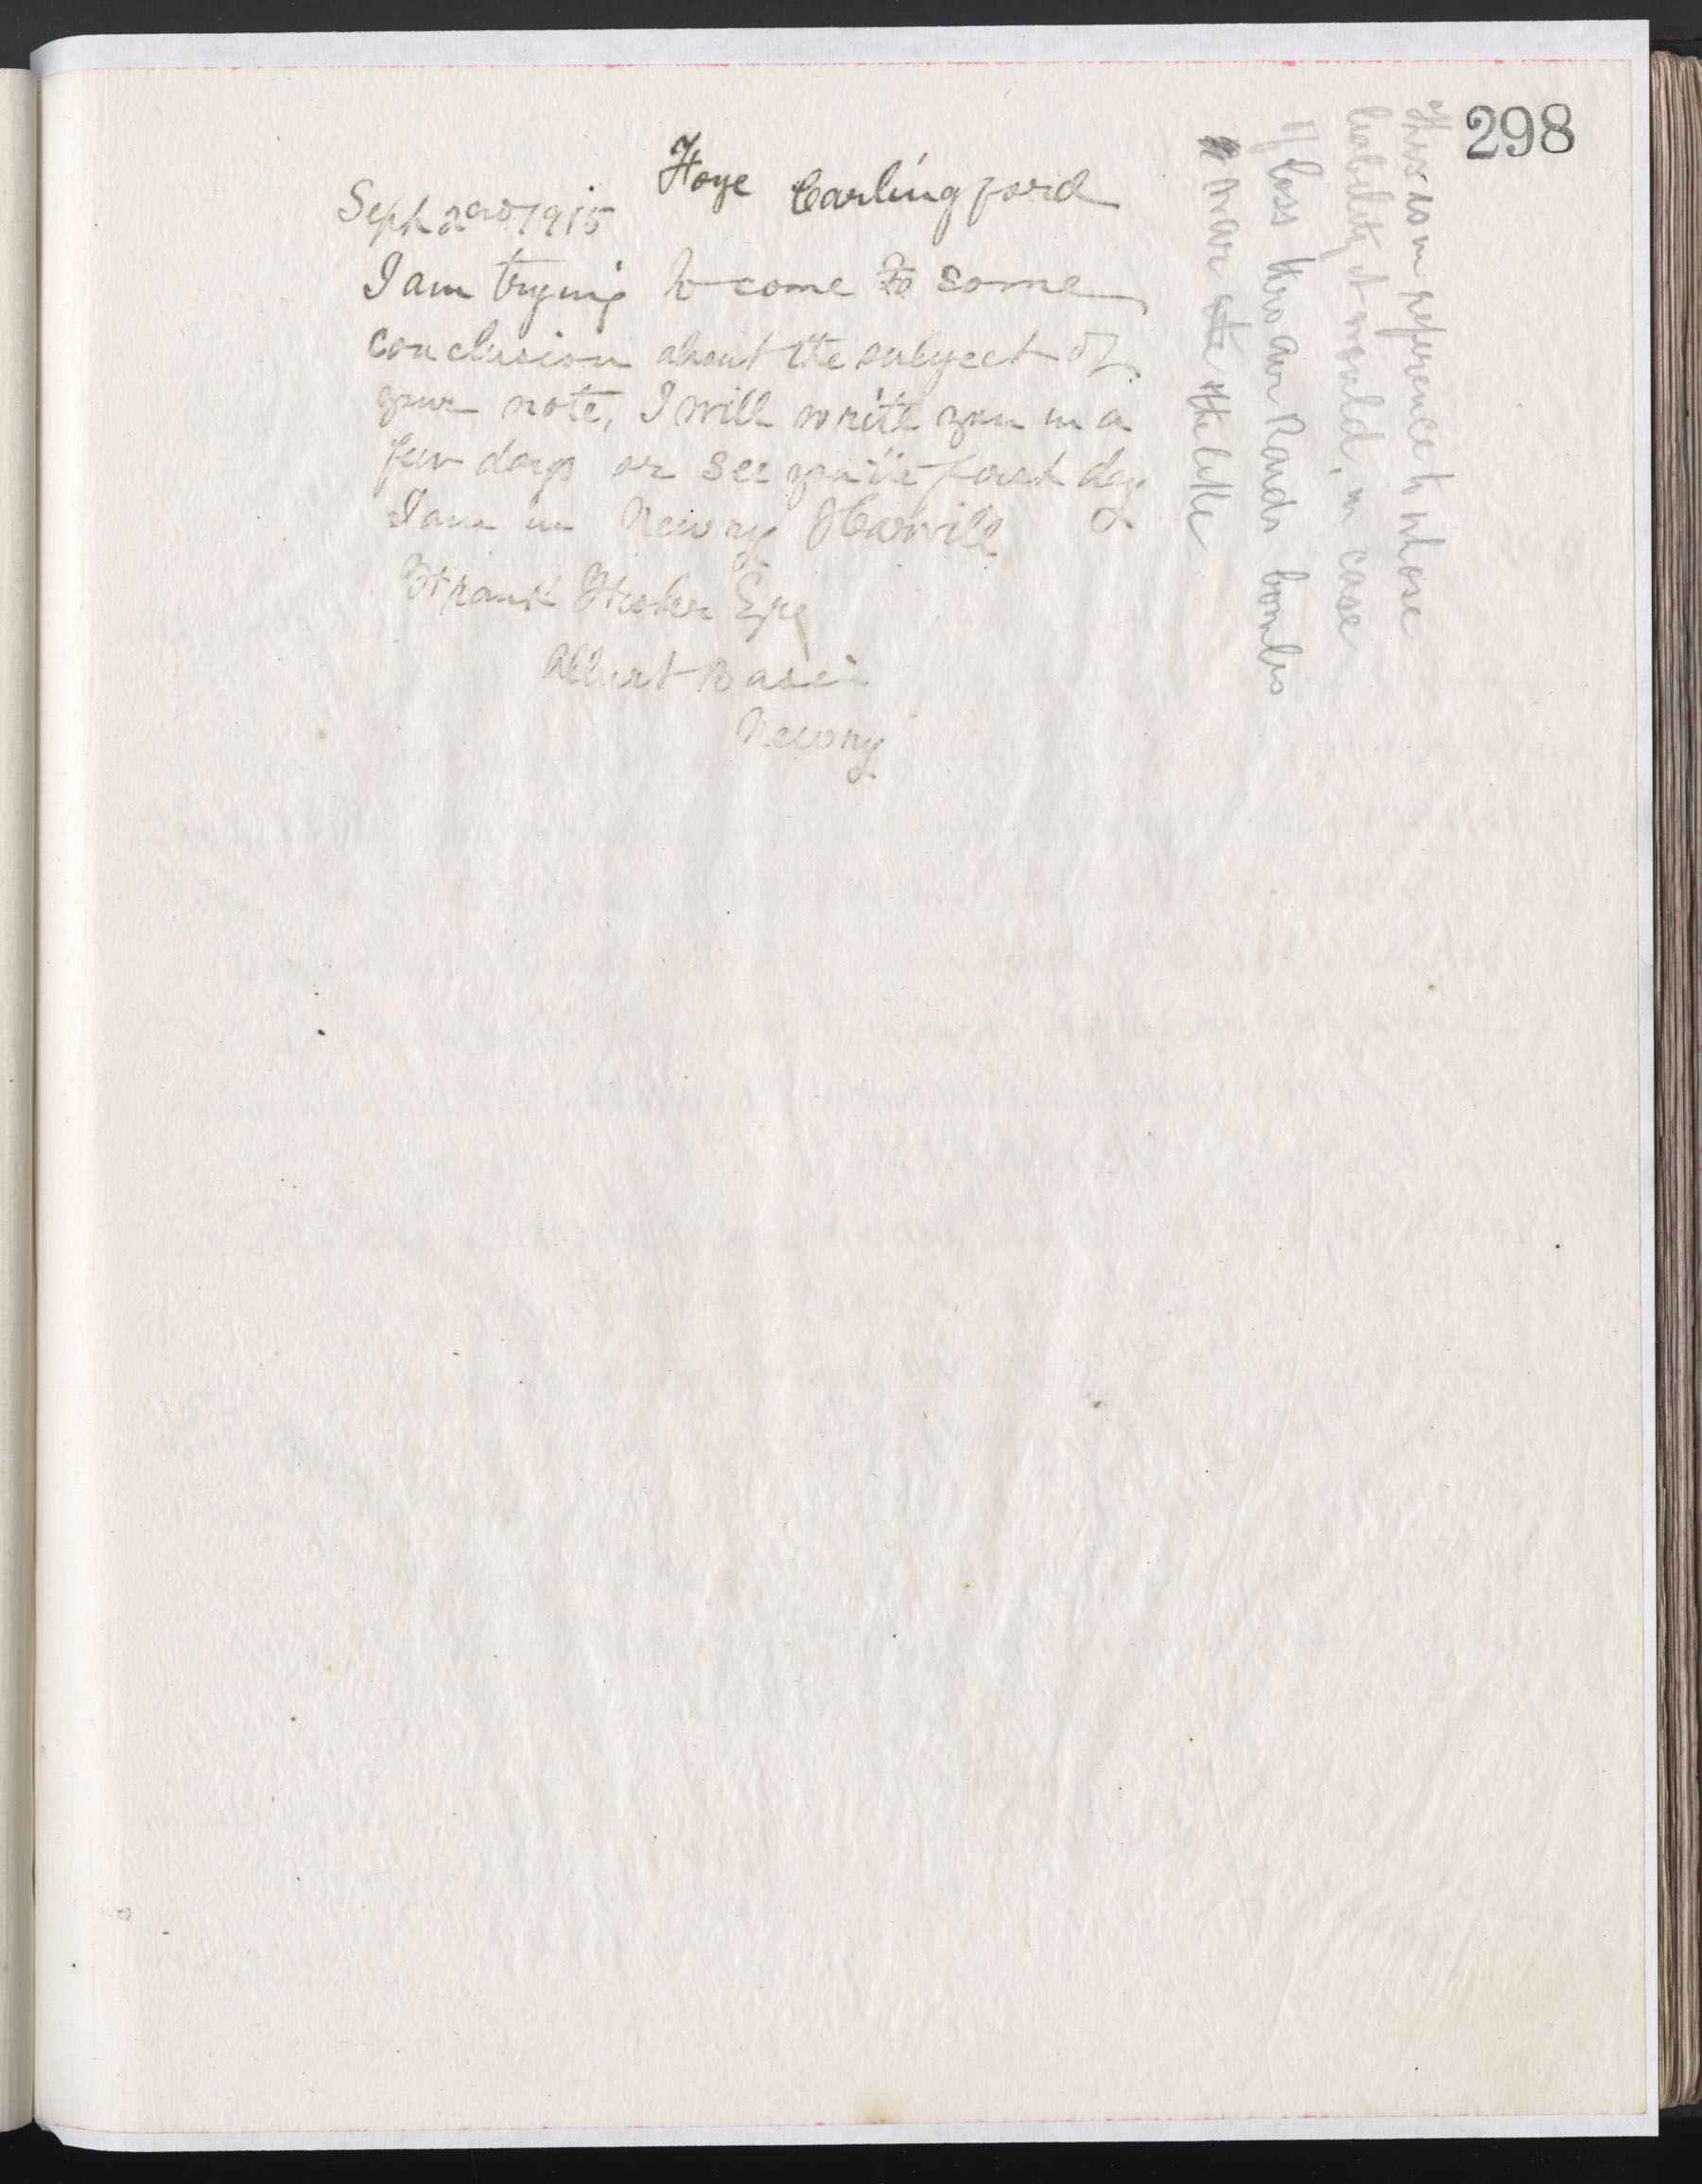 298
Foye Carlingford
Sept 2nd 1915
I am trying to come to some
conclusion about the subject of
your note, I will write you in a
few days or see you the first day
I am in Newry
Frank Esq
Albert Basin
Newry
This is in reference to whose
liability it would, in case
of loss thro air Raids bombs
war the the like